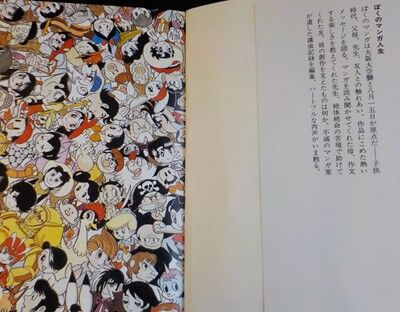 ぼくのマンガ人生
ぼくのマンガは大阪大空襲と八月一五日が原点だ――子供
時代、父母、先生、友人との触れあい、作品にこめた熱い
メッセージを語る。マンガを読み聞かせてくれた母、作文
する楽しさを教えてくれた先生、絶体絶命の苦境で助けて
くれた友。彼の創作を支えたものは何か。不滅のマンガ家
が遺した講演記録を編集、ハートフルな肉声がいま甦る。